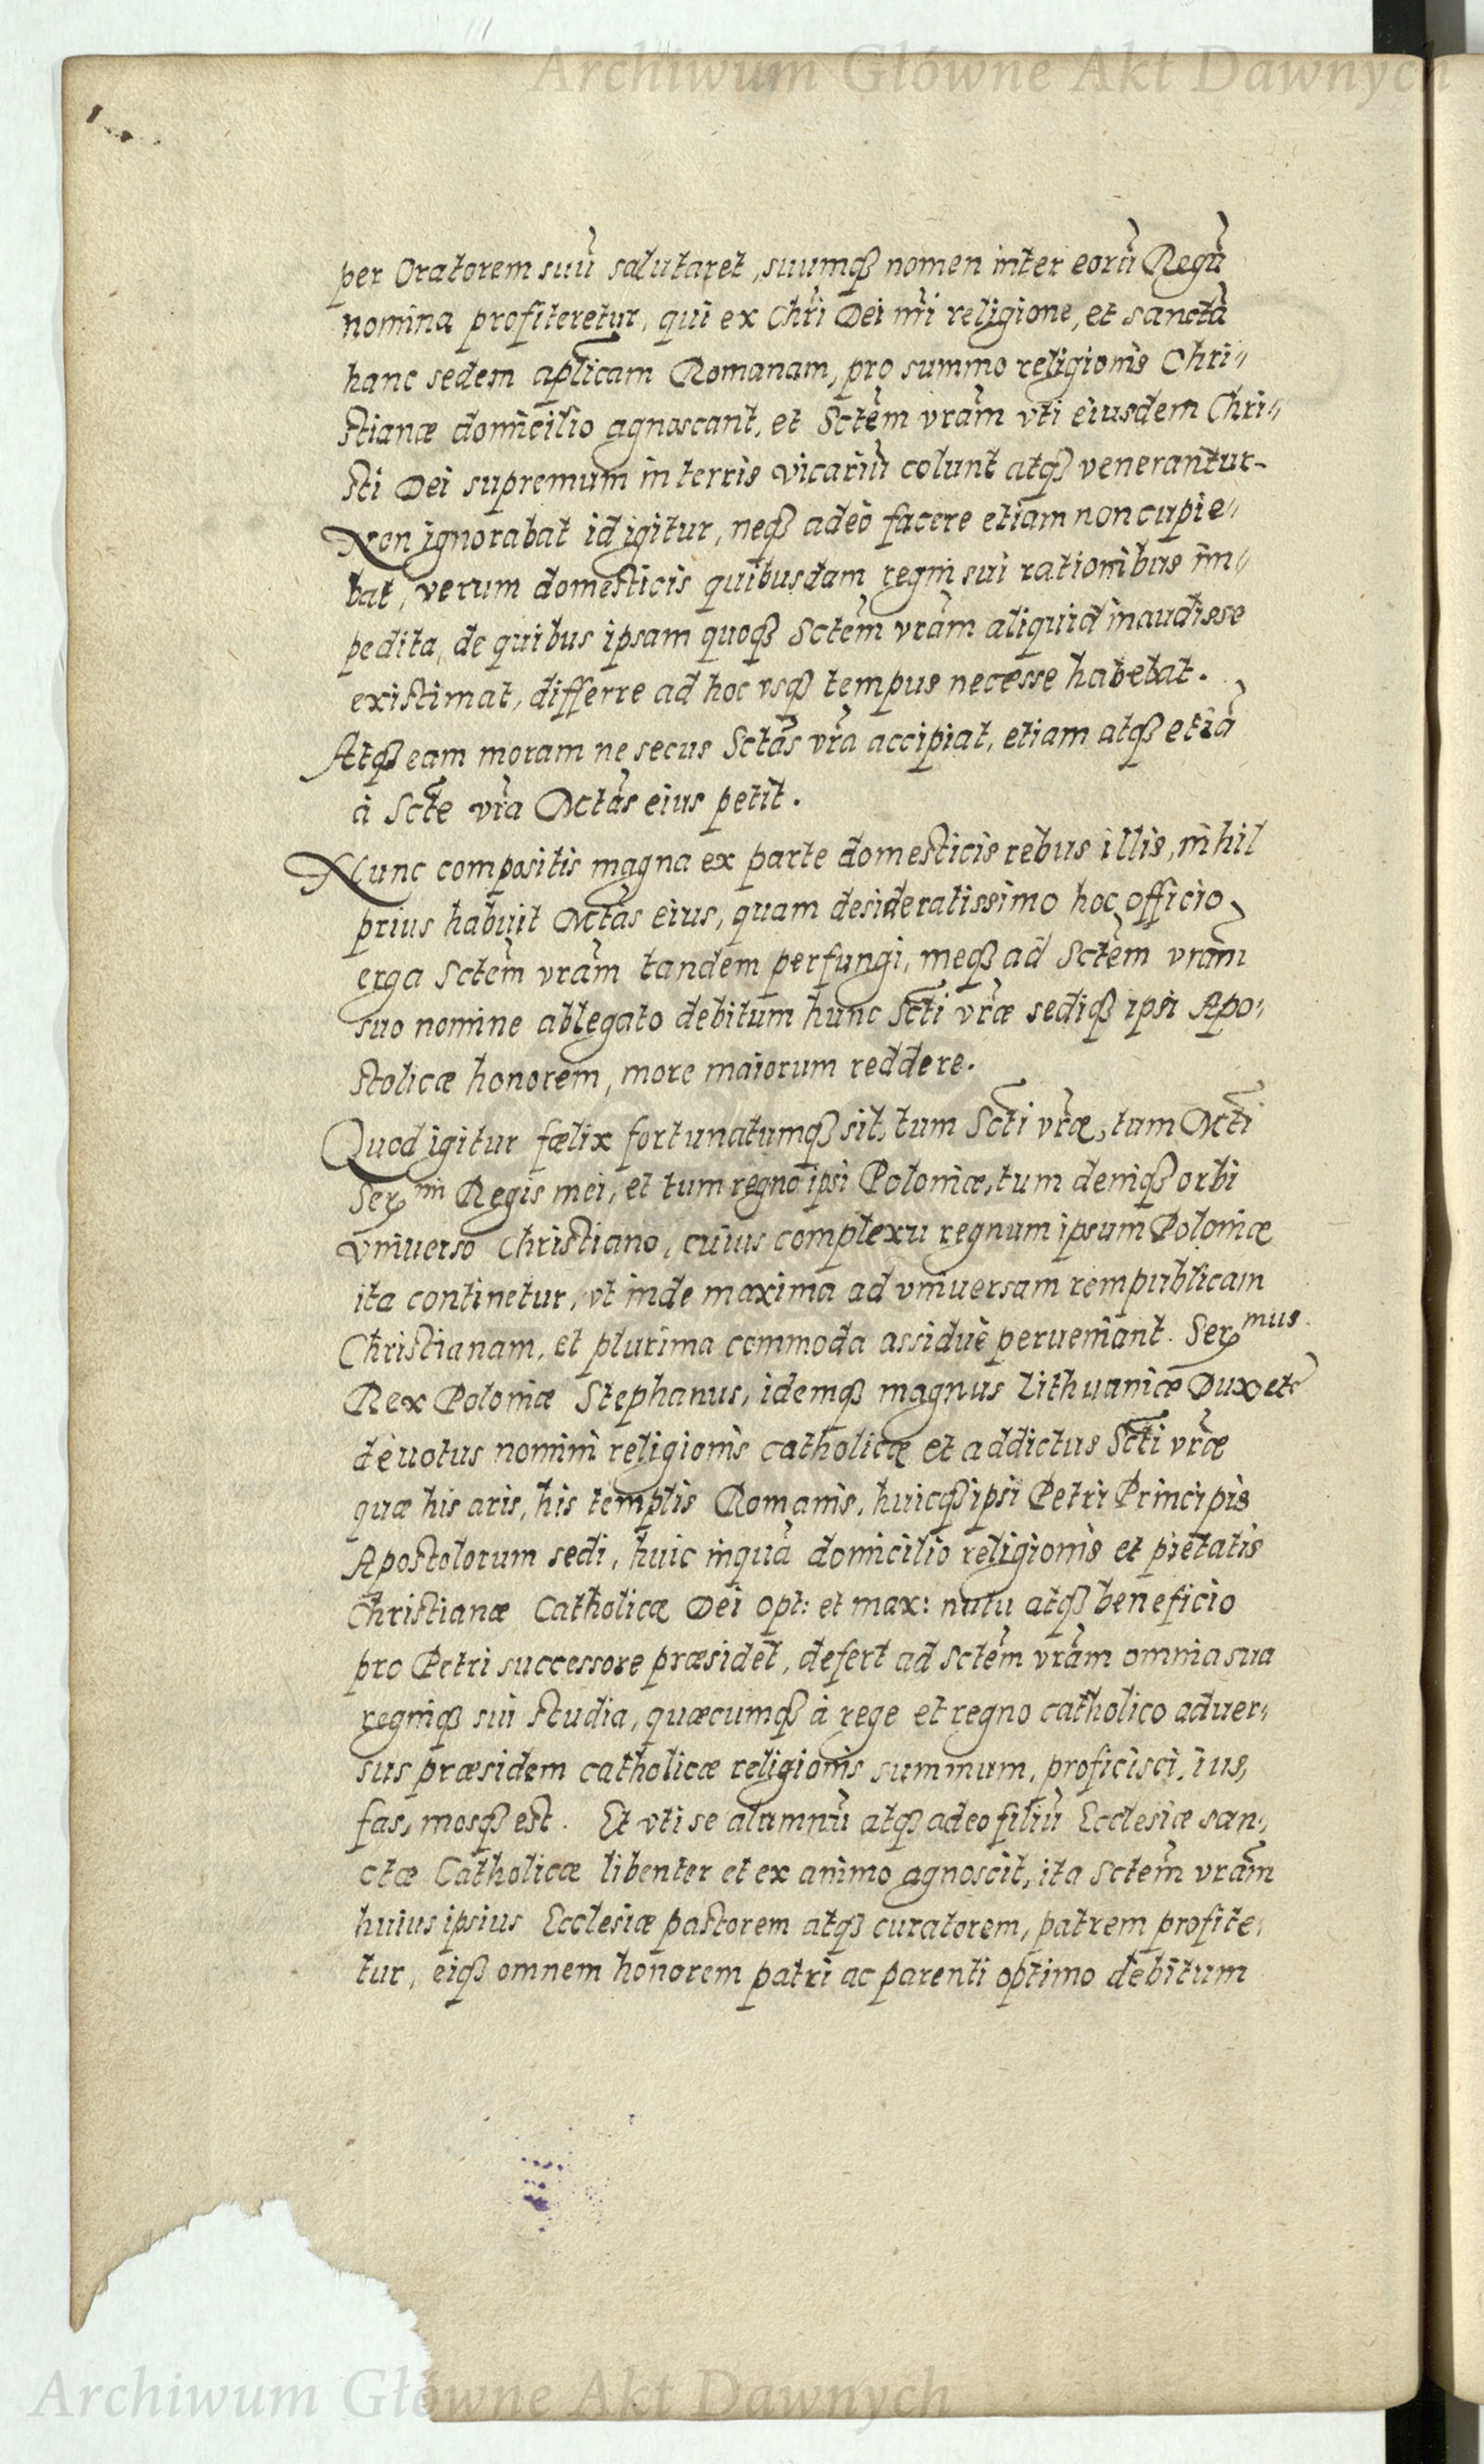 Archiwum Główne Akt Dawnych
per Oratorem suū salutaret, suumqꝫ nomen inter eorū Regū
nomina profiteretur, qui ex Chri̅ Dei nr̅i religione, et sanctā
hanc sedem ap̅licam Romanam, pro summo religionis Chri„
stianæ domicilio agnoscant, et Sctēm vrām vti eiusdem Chri„
sti Dei supremum in terris vicariū colunt atqꝫ venerantur-
Non ignorabat id igitur, neqꝫ adeò facere etiam non cupie„
bat, verum domesticis quibusdam regni sui rationibus im„
pedita, de quibus ipsam quoqꝫ Sctēm vrām aliquid inaudisse
existimat, differre ad hoc vsqꝫ tempus necesse habebat.
Atqꝫ eam moram ne secus Sctās vrā accipiat, etiam atqꝫ etiā
à Sctē vrā Mctās eius petit.
Nunc compositis magna ex parte domesticis rebus illis, nihil
prius habuit Mctās eius, quam desideratissimo hoc officio
erga Sctēm vrām tandem perfungi, meqꝫ ad Sctēm vrām
suo nomine ablegato debitum hunc Sctī vræ̅ sediqꝫ ipsi Apo„
stolicæ honorem, more maiorum reddere.
Quod igitur fælix fortunatumqꝫ sit, tum Sctī vræ̅, tum Mctī
Serᵐⁱ Regis mei, et tum regno ipsi Poloniæ, tum deniqꝫ orbi
vniuerso Christiano, cuius complexu regnum ipsum Poloniæ
ita continetur, vt inde maxima ad vniuersam rempublicam
Christianam, et plurima commoda assiduè perueniant. Serᵐᵘˢ.
Rex Poloniæ Stephanus, idemqꝫ magnus Lithuaniæ Dux etc̄
deuotus nomini religionis catholicæ et addictus Sctī vræ̅
quæ his aris, his templis Romanis, huicqꝫ ipsi Petri Principis
Apostolorum sedi, huic inquā domicilio religionis et pietatis
Christianæ Catholicæ Dei opt: et max: nutu atqꝫ beneficio
pro Petri successore præsidet, defert ad Sctēm vrām omnia sua
regniqꝫ sui studia, quæcumqꝫ à rege et regno catholico aduer„
sus præsidem catholicæ religionis summum, proficisci, ius,
fas, mosqꝫ est. Et vti se alumnū atqꝫ adeo filiū Ecclesiæ san„
ctæ Catholicæ libenter et ex animo agnoscit, ita Sctēm vrām
huius ipsius Ecclesiæ pastorem atqꝫ curatorem, patrem profite„
tur, eiqꝫ omnem honorem patri ac parenti optimo debitum
Archiwum Główne Akt Dawnych